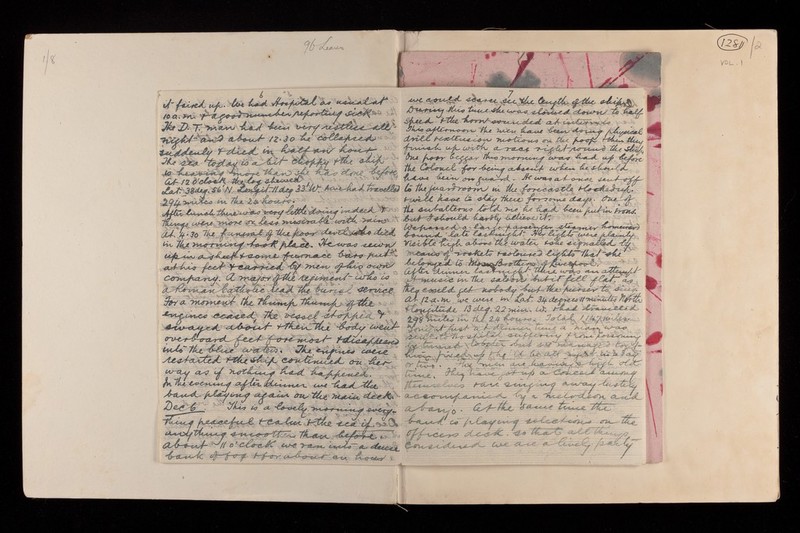 1/8
96 Leaves
1288/2
VOL. 1
6
it faired up. We had Hospital as usual at
10 a.m. & a good number reporting sick
The D.T. man had been very restless all
night and about 12.30 he collapsed
suddenly & died in half an hour
The sea today is a bit choppy & the ship
is heaving more than she has done before
At 12 o'clock the log showed
Lat. 38 deg. 56' N. Longit. 11 deg 33' W. and had travelled
294 miles in the 24 hours.
After lunch there was very little doing indeed &
things were more or less miserable with rain
At 4.30 the funeral of the poor devil who died
in the morning took place. He was sewn
up in a sheet some furnace bars put
at his feet & carried by men of his own
company. A major of the regiment who is
a Roman Catholic read the burial service
For a moment the thump thump of the
engines ceased, the vessel stopped &
swayed about & then the body went
overboard feet foremost & disappeared
into the blue water. The engines were
restarted & the ship continued on her
way as if nothing had happened.
In the evening after dinner we had the
band playing again on the main deck.
Dec 6 This is a lovely morning every-
thing peaceful & calm & the sea if
anything smoother than before.
about 11 o'clock we ran into a dense
bank of fog & for about an hour
7
we could scarce see the length of the ship.
During this time she was slowed down to half
speed & the horn sounded at intervals
This afternoon the men have been doing physical
drill & extension motions on the poop & then they
finish up with a race right round the ship
One poor beggar this morning was had up before
the Colonel for being absent when he should
have been on guard. He was at once sent off
to the guardroom in the forecastle & locked up.
& will have to stay there for some days. One of
the subalterns told me he had been put in irons
but I should hardly believe it.
We passed a large passenger steamer homeward
bound late last night. Her lights were plainly
visible high above the water & she signalled by
means of rockets & coloured lights that she
belonged to Brothers of Liverpool.
After dinner last night there was an attempt
at music in the saloon but it fell flat, as
they could get nobody but the purser to sing
At 12 a.m. we were in Lat. 34 degrees 11 minutes North
& longitude 13 deg. 22 min. W. & had traversed
298 miles in the 24 hours. Total 1167 miles
Tonight just at dinner time a man was
sent to hospital suffering from
him
or five. The men are having a high old
time. They have got up a concert among
themselves & are singing away lustily
accompanied by a melodion and
a banjo. At the same time the
band is playing selections on the
officers deck so that all things
considered we are a lively party